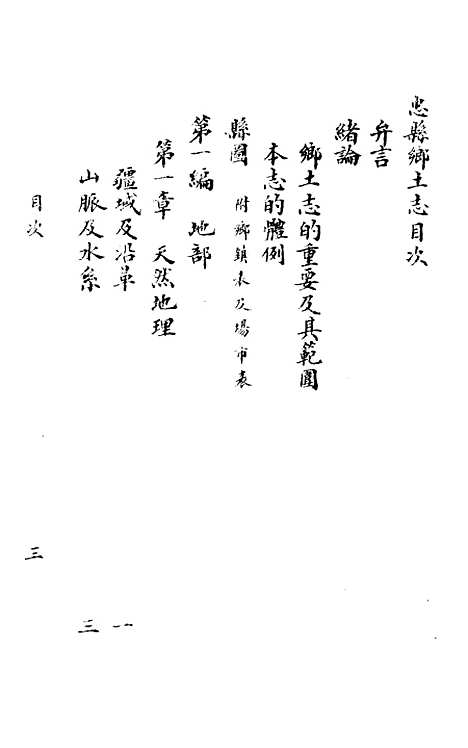 忠縣鄉土志目次
弁言
緒論
鄉土志的重要及其範圍
本志的體例
縣圖 附鄉鎮表及場市表
第一編 地部
第一章 天然地理
疆域及沿革 一
山脈及水系 三
目次 三